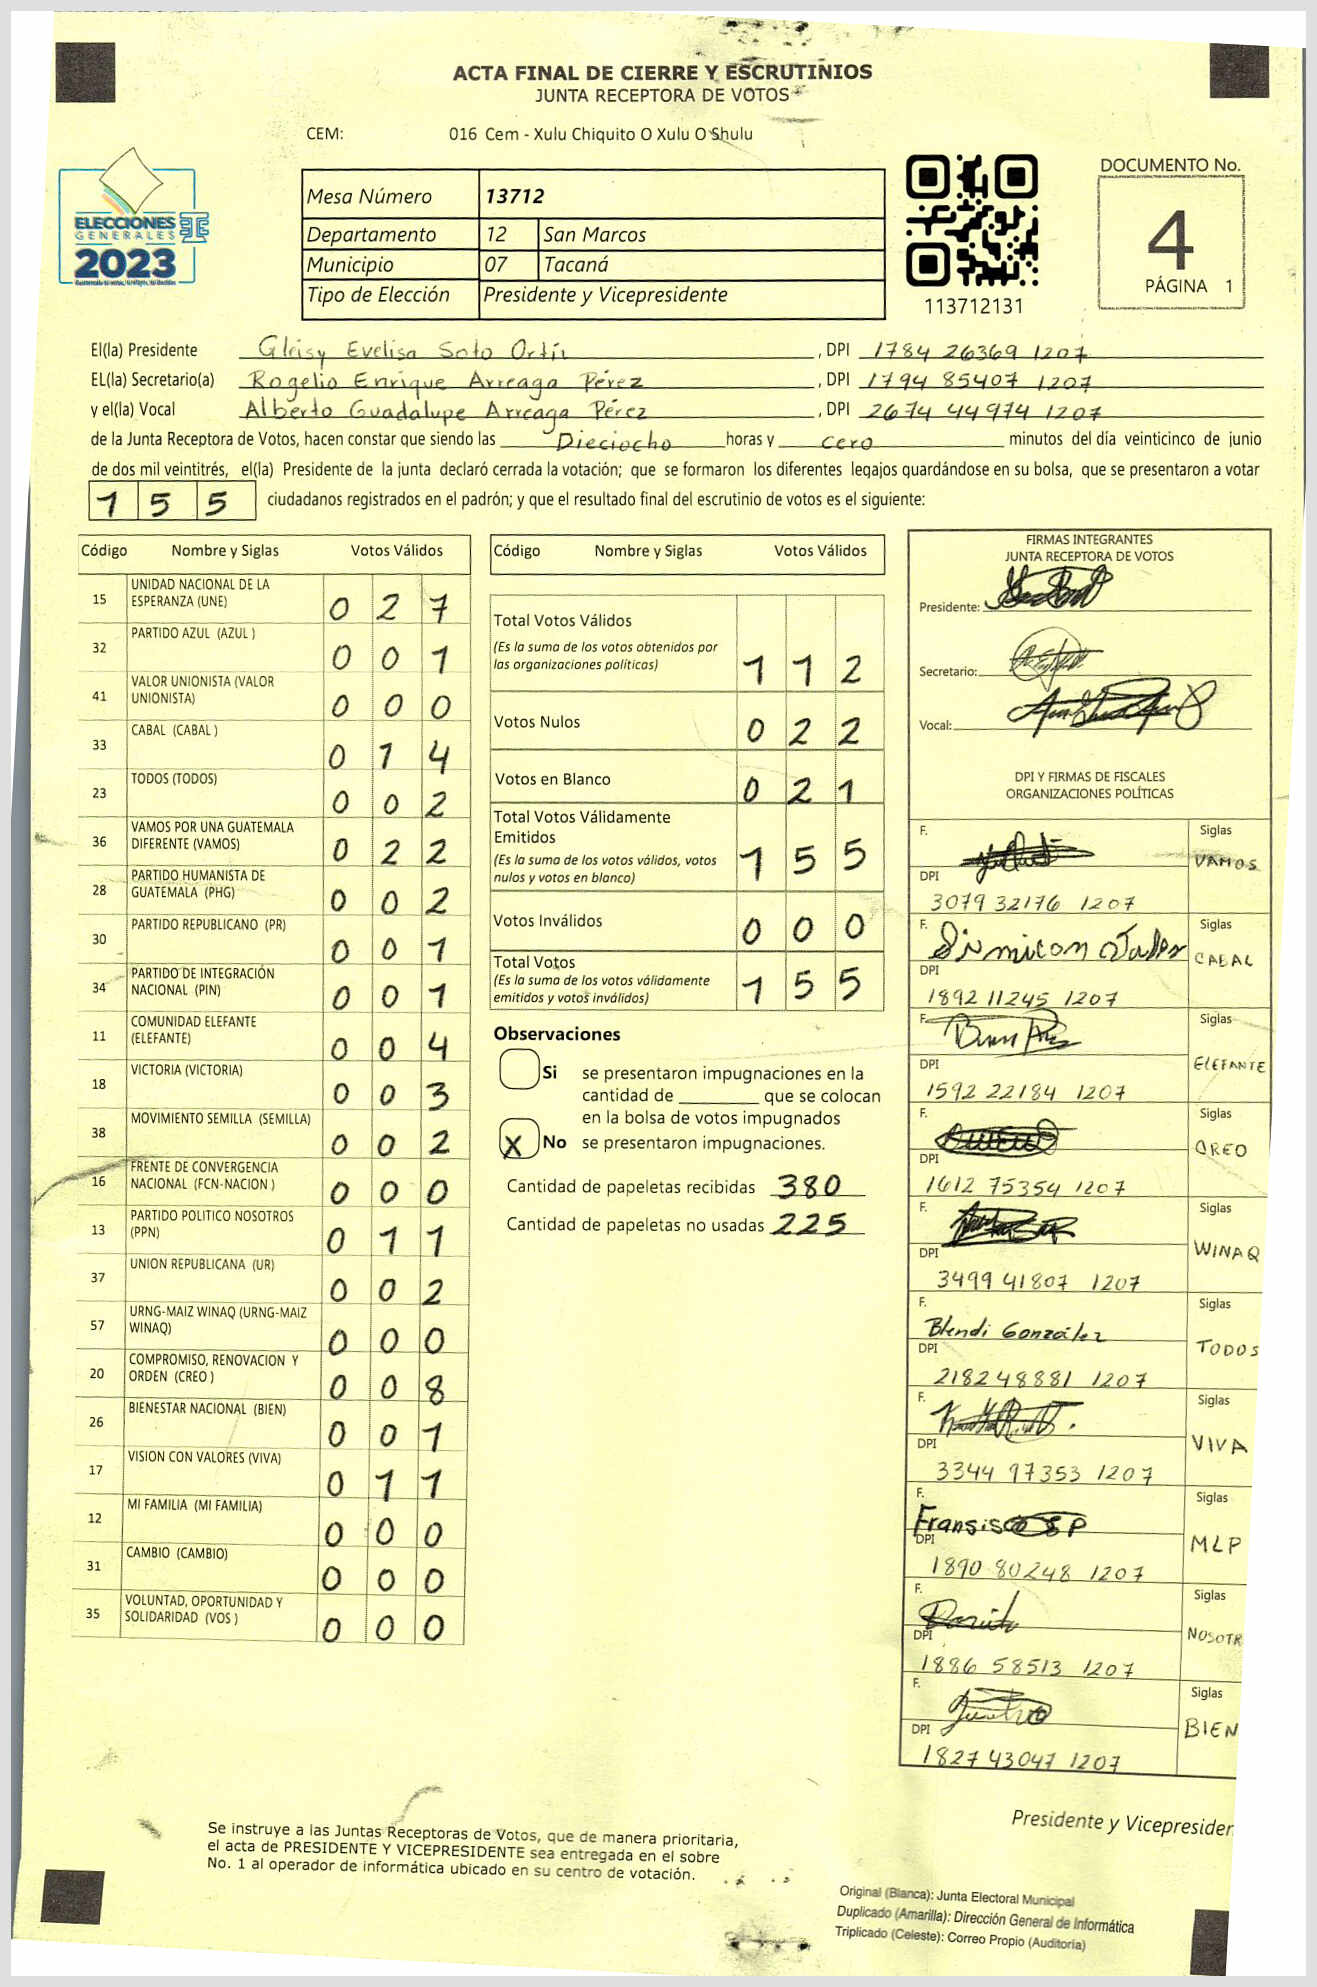 ACTA FINAL DE CIERRE Y ESCRUTINIOS
JUNTA RECEPTORA DE VOTOS
CEM: 016 Cem - Xulu Chiquito O Xulu O Shulu
ELECCIONES
GENERALES
2023
Mesa Número 13712
Departamento 12 San Marcos
Municipio 07 Tacaná
Tipo de Elección Presidente y Vicepresidente
113712131
DOCUMENTO No.
4
PÁGINA 1
El(la) Presidente Gleisy Evelisa Soto Ortíz, DPI 1784 26369 1207
EL(la) Secretario(a) Rogelio Enrique Arreaga Pérez, DPI 1794 85407 1207
y el(la) Vocal Alberto Guadalupe Arreaga Pérez, DPI 2674 44974 1207
de la Junta Receptora de Votos, hacen constar que siendo las Dieciocho horas y cero minutos del día veinticinco de junio
de dos mil veintitrés, el(la) Presidente de la junta declaró cerrada la votación; que se formaron los diferentes legajos quardándose en su bolsa, que se presentaron a votar
155 ciudadanos registrados en el padrón; y que el resultado final del escrutinio de votos es el siguiente:
Código Nombre y Siglas Votos Válidos
15 UNIDAD NACIONAL DE LA ESPERANZA (UNE) 0 2 7
32 PARTIDO AZUL (AZUL ) 0 0 1
41 VALOR UNIONISTA (VALOR UNIONISTA) 0 0 0
33 CABAL (CABAL ) 0 1 4
23 TODOS (TODOS) 0 0 2
36 VAMOS POR UNA GUATEMALA DIFERENTE (VAMOS) 0 2 2
28 PARTIDO HUMANISTA DE GUATEMALA (PHG) 0 0 2
30 PARTIDO REPUBLICANO (PR) 0 0 1
34 PARTIDO DE INTEGRACIÓN NACIONAL (PIN) 0 0 1
11 COMUNIDAD ELEFANTE (ELEFANTE) 0 0 4
18 VICTORIA (VICTORIA) 0 0 3
38 MOVIMIENTO SEMILLA (SEMILLA) 0 0 2
16 FRENTE DE CONVERGENCIA NACIONAL (FCN-NACION ) 0 0 0
13 PARTIDO POLITICO NOSOTROS (PPN) 0 1 1
37 UNION REPUBLICANA (UR) 0 0 2
57 URNG-MAIZ WINAQ (URNG-MAIZ WINAQ) 0 0 0
20 COMPROMISO, RENOVACION Y ORDEN (CREO ) 0 0 8
26 BIENESTAR NACIONAL (BIEN) 0 0 1
17 VISION CON VALORES (VIVA) 0 1 1
12 MI FAMILIA (MI FAMILIA) 0 0 0
31 CAMBIO (CAMBIO) 0 0 0
35 VOLUNTAD, OPORTUNIDAD Y SOLIDARIDAD (VOS ) 0 0 0
Código Nombre y Siglas Votos Válidos
Total Votos Válidos
(Es la suma de los votos obtenidos por
las organizaciones políticas) 1 1 2
Votos Nulos 0 2 2
Votos en Blanco 0 2 1
Total Votos Válidamente
Emitidos
(Es la suma de los votos válidos, votos
nulos y votos en blanco) 1 5 5
Votos Inválidos 0 0 0
Total Votos
(Es la suma de los votos válidamente
emitidos y votos inválidos) 1 5 5
Observaciones
Si se presentaron impugnaciones en la
cantidad de ________ que se colocan
en la bolsa de votos impugnados
X No se presentaron impugnaciones.
Cantidad de papeletas recibidas 380
Cantidad de papeletas no usadas 225
FIRMAS INTEGRANTES
JUNTA RECEPTORA DE VOTOS
Presidente:
Secretario:
Vocal:
DPI Y FIRMAS DE FISCALES
ORGANIZACIONES POLÍTICAS
F. Siglas VAMOS
DPI 3079 32176 1207
F. Siglas CABAL
DPI 1892 11245 1207
F. Siglas ELEFANTE
DPI 1592 22184 1207
F. Siglas CREO
DPI 1612 75354 1207
F. Siglas WINAQ
DPI 3499 41807 1207
F. Blendi González Siglas TODOS
DPI 2182 48881 1207
F. Siglas VIVA
DPI 3344 97353 1207
F. Fransisco S P Siglas MLP
DPI 1890 80248 1207
F. Siglas NOSOTR
DPI 1886 58513 1207
F. Siglas BIEN
DPI 1827 43047 1207
Presidente y Vicepresiden
Se instruye a las Juntas Receptoras de Votos, que de manera prioritaria,
el acta de PRESIDENTE Y VICEPRESIDENTE sea entregada en el sobre
No. 1 al operador de informática ubicado en su centro de votación.
Original (Blanca): Junta Electoral Municipal
Duplicado (Amarilla): Dirección General de Informática
Triplicado (Celeste): Correo Propio (Auditoría)